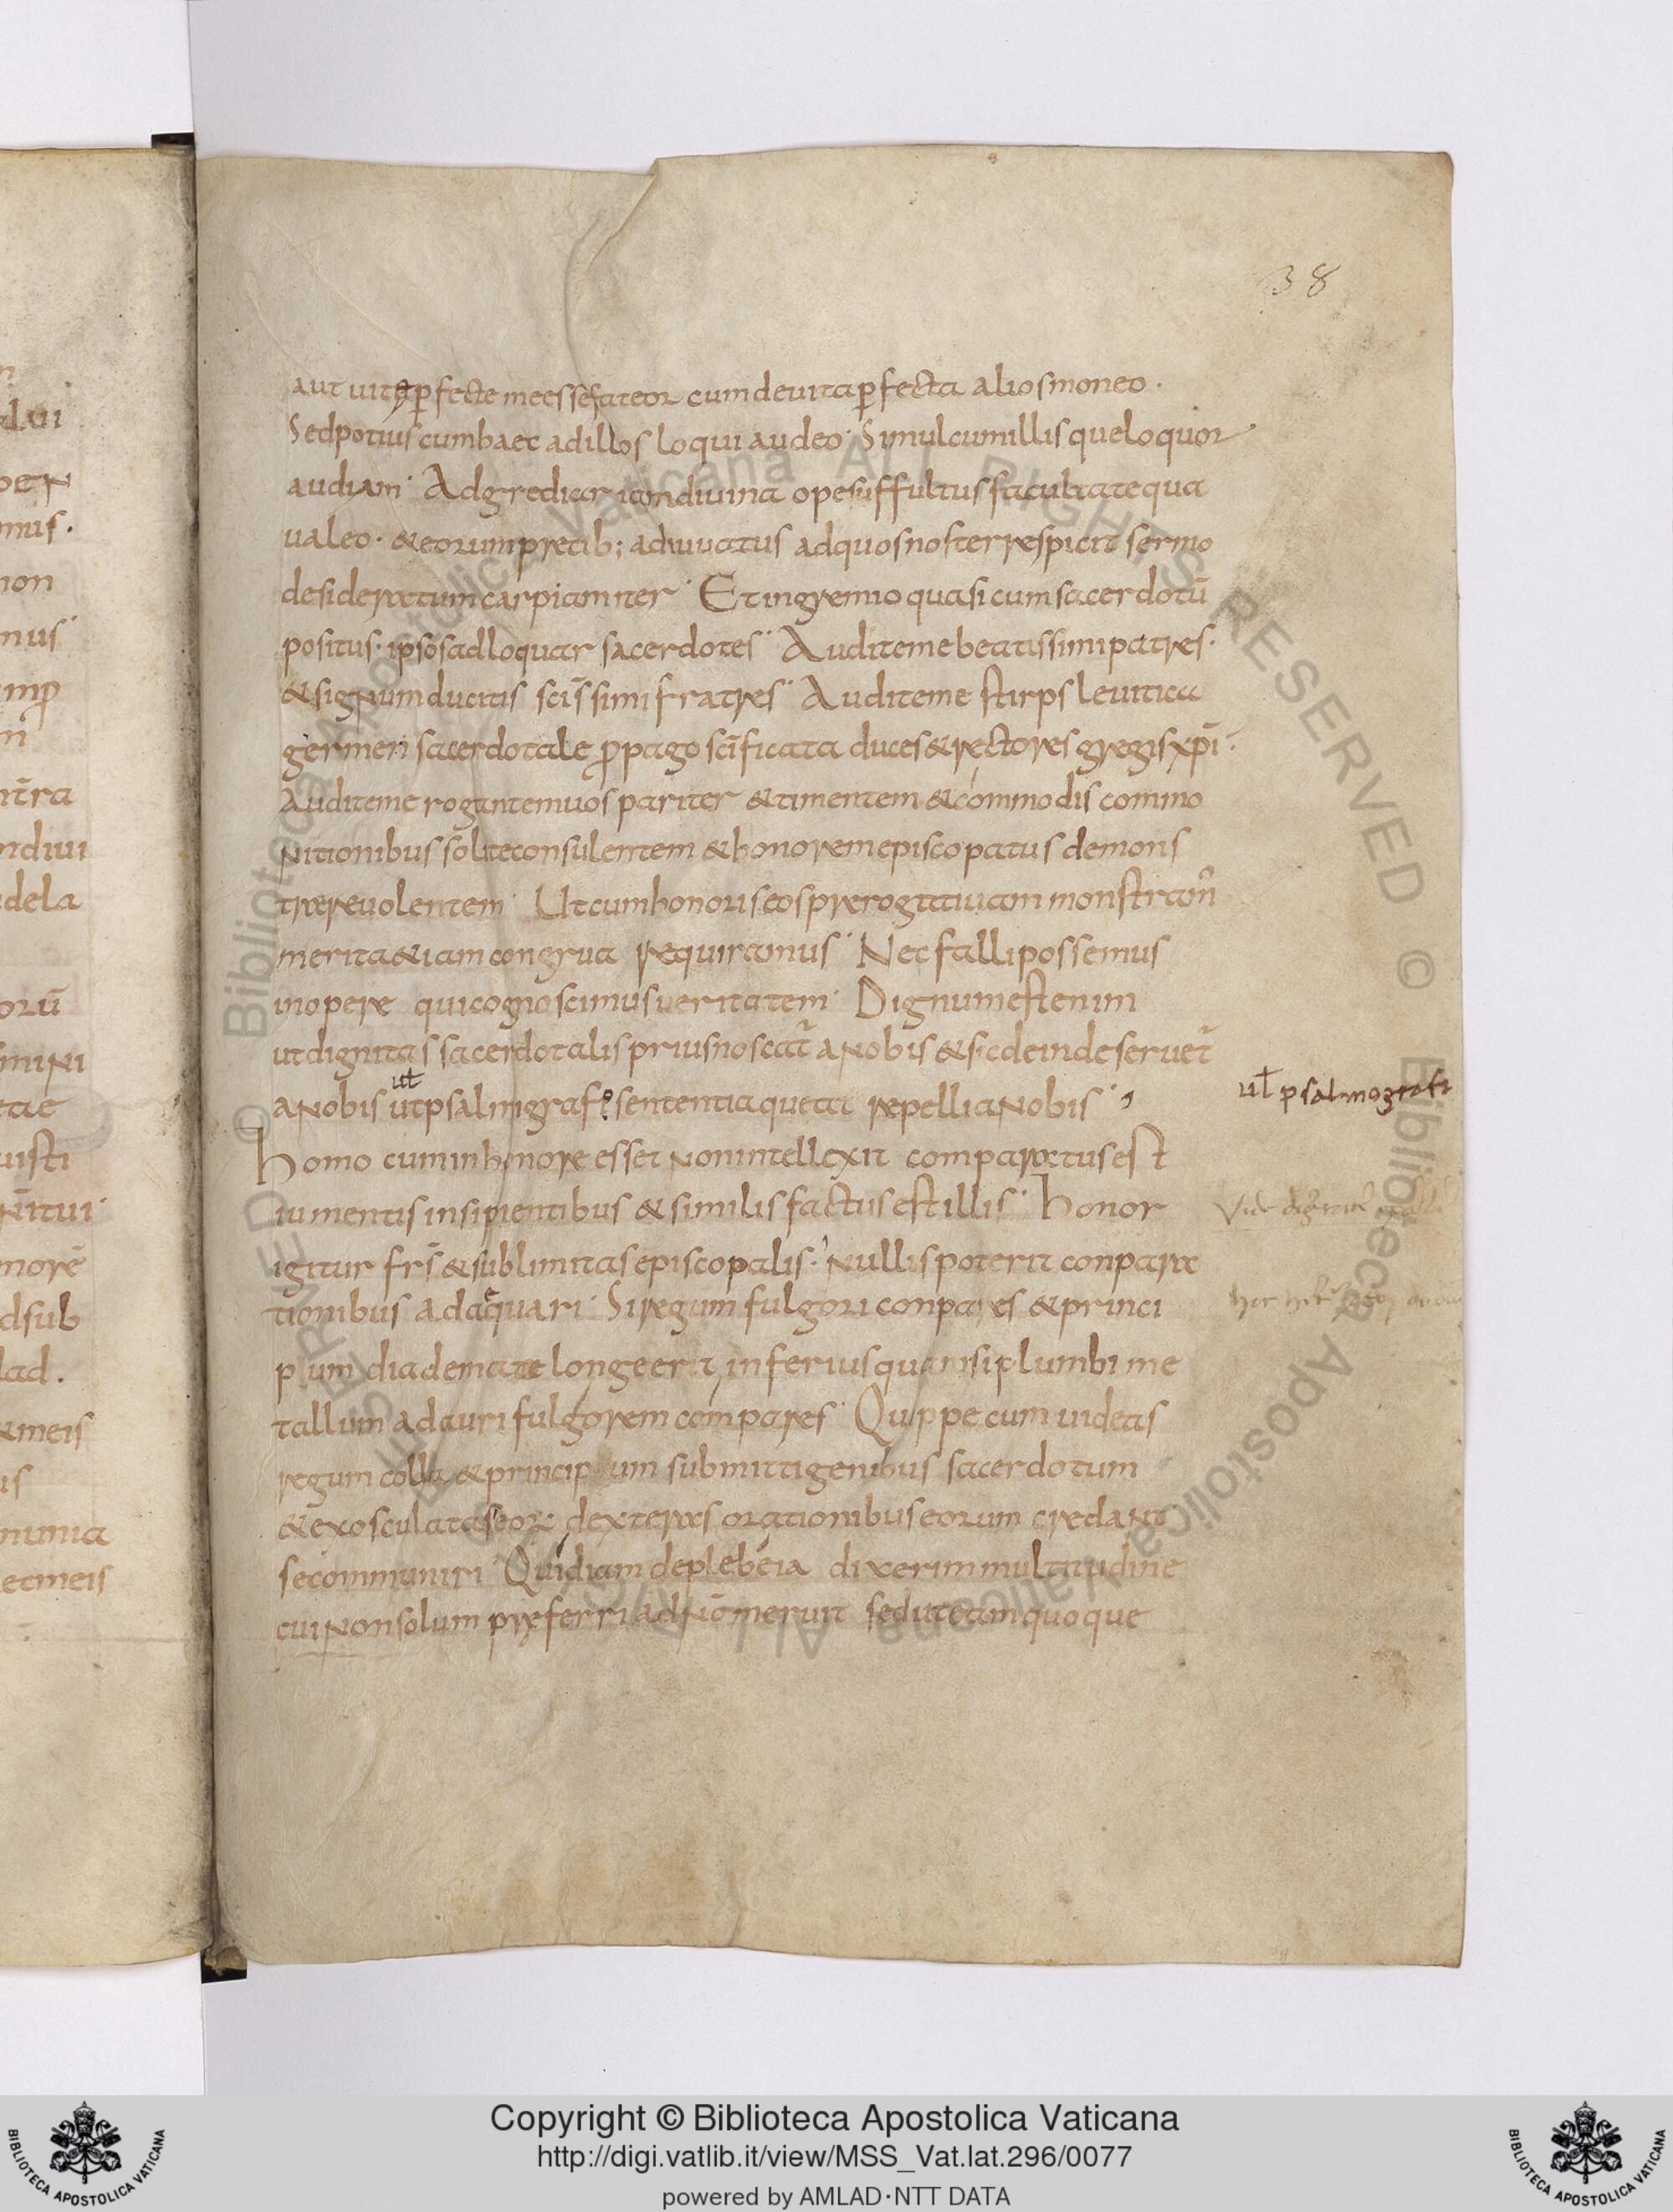 38
aut uitę ꝑfecte me esse fateor cum de uita ꝑfecta alios moneo ·
Sed potius cum haec ad illos loqui audeo · Simul cum illis que loquor
audiam · Adgrediar iam diuina ope suffultus facultate qua
ualeo · & eorum precib; adiuuatus ad quos noster respicit sermo
desideratum carpiam iter · Et in gremio quasi cum sacerdotū
positus · ipsos adloquar sacerdotes · Audite me beatissimi patres ·
& si gnum ducitis scīssimi fratres · Audite me stirps leuitica
germen sacerdotale ꝓpago scīficata duces & rectores gregis xp̄i ·
Audite me rogantem uos pariter & timentem & commodis commo
nitionibus sol consulentem & honorem episcopatus demons
trare uolentem · Ut cum honoris eos prerogatiuam monstram̄
merita & iam congrua requiramus · Nec falli possemus
in opere qui cognoscimus ueritatem · Dignum est enim
ut dignitas sacerdotalis prius noscat̄ a nobis & sic deinde seruet̄
a nobis ut psalmigrafi sententia queat repelli a nobis ·
uƚ
uƚ psalmografi
Homo cum in honore esset non intellexit comparatus est
iumentis insipientibus & similis factus est illis · Honor
igitur fr̄s & sublimitas episcopalis · nullis poterit conpara
tionibus adaequari · Si regum fulgori conpares & princi
pum diademate longe erit inferius quam si plumbi me
tallum ad auri fulgorem compares · Quippe cum uideas
regum colla & principum submitti genibus sacerdotum
& exosculatas eorꝝ dexteras orationibus eorum credant
se communiri · Quid iam de plebeia dixerim multitudine
cui non solum praeferri a dn̄o meruit sed ut eam quoque
Copyright © Biblioteca Apostolica Vaticana
http://digi.vatlib.it/view/MSS_Vat.lat.296/0077
powered by AMLAD·NTT DATA
BIBLIOTECA APOSTOLICA VATICANA
BIBLIOTECA APOSTOLICA VATICANA